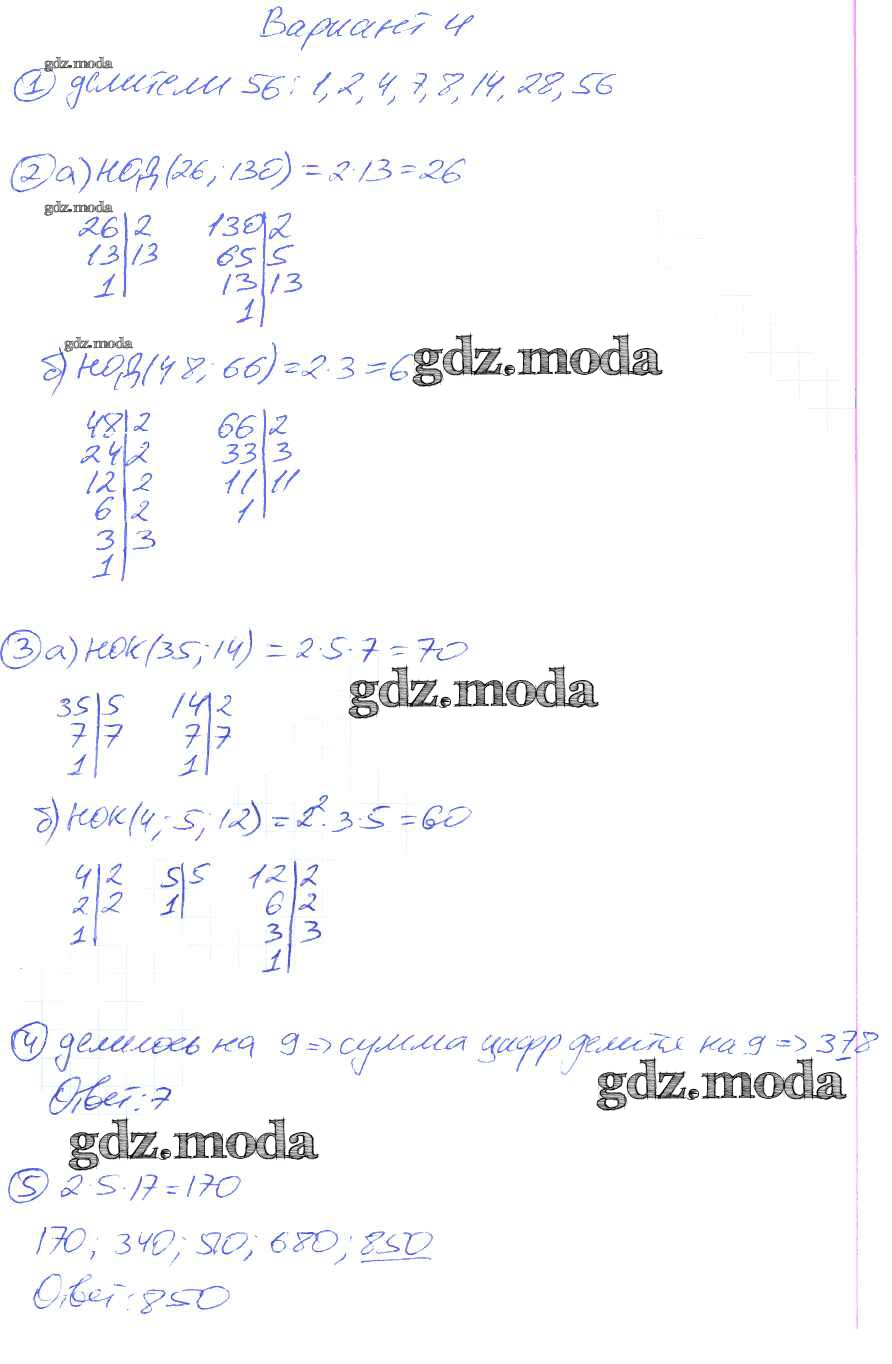 Вариант 4
gdz.moda
① делители 56: 1, 2, 4, 7, 8, 14, 28, 56
② а) НОД(26; 130) = 2·13 = 26
gdz.moda
26|2 130|2
13|13 65|5
1| 13|13
1|
gdz.moda
б) НОД(48; 66) = 2·3 = 6 gdz.moda
48|2 66|2
24|2 33|3
12|2 11|11
6|2 1|
3|3
1|
③ а) НОК(35; 14) = 2·5·7 = 70
gdz.moda
35|5 14|2
7|7 7|7
1| 1|
б) НОК(4; 5; 12) = 2²·3·5 = 60
4|2 5|5 12|2
2|2 1| 6|2
1| 3|3
1|
④ делилось на 9 => сумма цифр делится на 9 => 378
gdz.moda
Ответ: 7
gdz.moda
⑤ 2·5·17 = 170
170; 340; 510; 680; 850
Ответ: 850